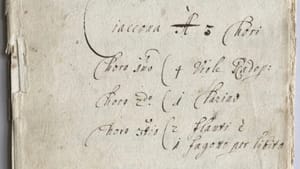 Ciaccona A 3 Chori
Choro 1mo ( 4 Viole Radop:
Choro 2do ( 1 Clarino
Choro 3tio ( 2 Flauti è
1 fagotto per libito